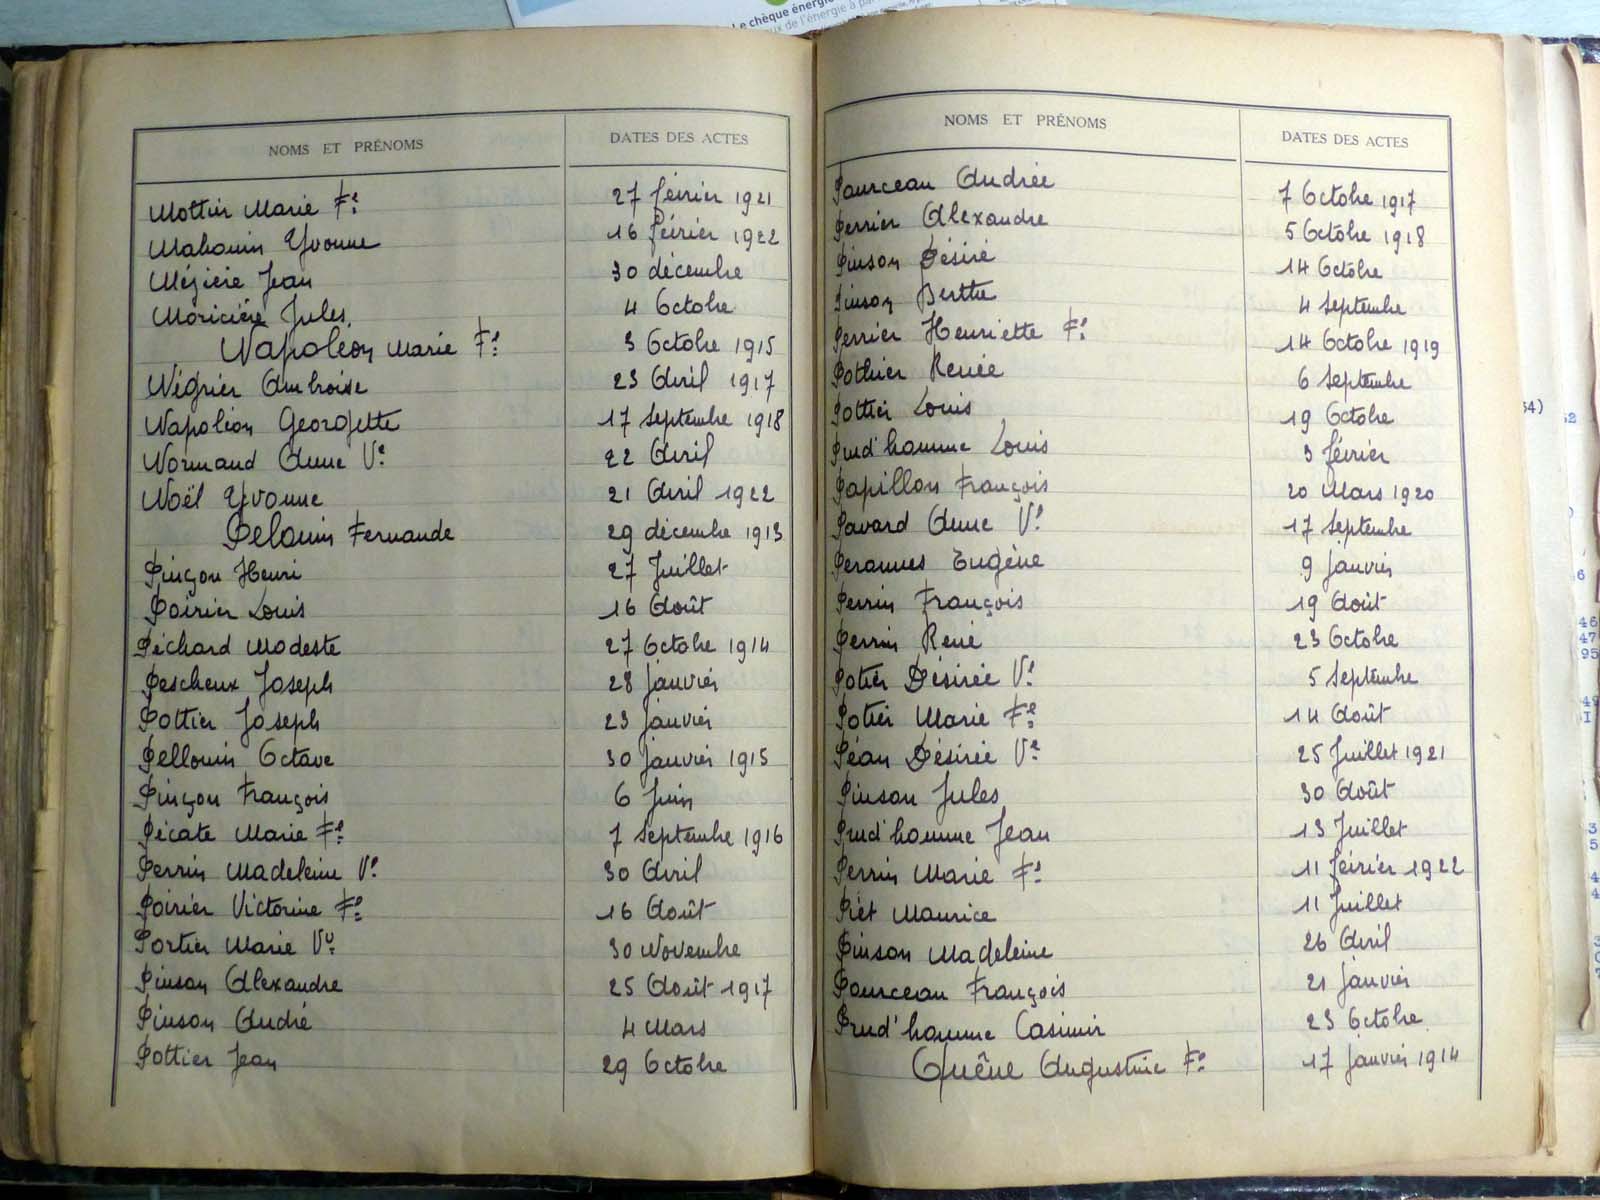 Le chèque énergie
NOMS ET PRÉNOMS DATES DES ACTES
Mottier Marie Fe 27 février 1921
Mahouin Yvonne 16 février 1922
Mézière Jean 30 décembre
Moricière Jules 4 Octobre
Napoléon Marie Fe 3 Octobre 1915
Négrier Ambroise 23 Avril 1917
Napoléon Georgette 17 Septembre 1918
Normand Anne Ve 22 Avril
Noël Yvonne 21 Avril 1922
Pelouin Fernande 29 décembre 1913
Pinçon Henri 27 Juillet
Poirier Louis 16 Août
Péchard Modeste 27 Octobre 1914
Pescheux Joseph 28 Janvier
Pottier Joseph 23 Janvier
Pellouin Octave 30 Janvier 1915
Pinçon François 6 Juin
Pécate Marie Fe 7 Septembre 1916
Perrin Madeleine Ve 30 Avril
Poirier Victorine Fe 16 Août
Portier Marie Vu 30 Novembre
Pinson Alexandre 25 Août 1917
Pinson André 4 Mars
Pottier Jean 29 Octobre
NOMS ET PRÉNOMS DATES DES ACTES
Pourceau Andrée 7 Octobre 1917
Perrier Alexandre 5 Octobre 1918
Pinson Désiré 14 Octobre
Pinson Berthe 4 Septembre
Perrier Henriette Fe 14 Octobre 1919
Pothier Renée 6 Septembre
Pottier Louis 19 Octobre
Prud'homme Louis 3 février
Papillon François 20 Mars 1920
Pavard Anne Ve 17 Septembre
Perannes Eugène 9 Janvier
Perrin François 19 Août
Perrin René 23 Octobre
Potier Désirée Ve 5 Septembre
Potier Marie Fe 14 Août
Péan Désirée Ve 25 Juillet 1921
Pinson Jules 30 Août
Prud'homme Jean 13 Juillet
Perrin Marie Fe 11 février 1922
Piet Maurice 11 Juillet
Pinson Madeleine 26 Avril
Pourceau François 21 Janvier
Prud'homme Casimir 23 Octobre
Quêne Augustine Fe 17 Janvier 1914